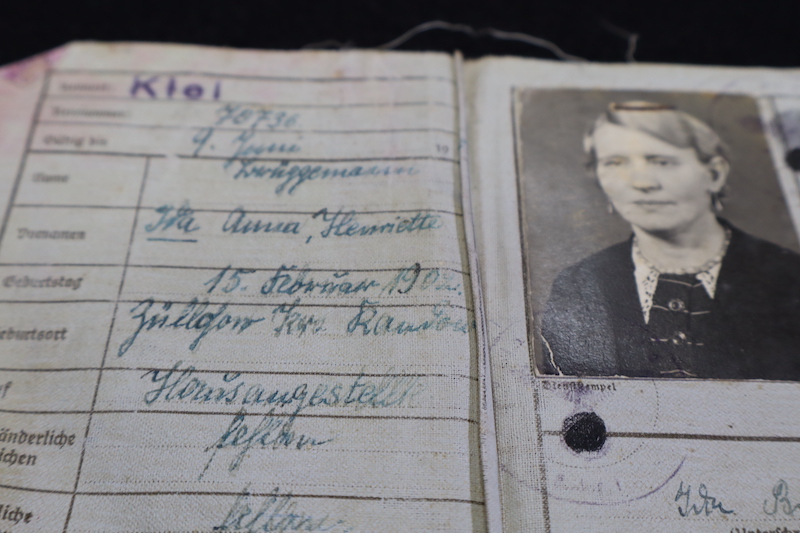 Kiel
70736
Gültig bis 9. Juni 19
Name Brüggemann
Vornamen Ida Anna, Henriette
Geburtstag 15. Februar 190
eburtsort Züllchow Krs. Randow
f Hausangestellte
änderliche
ichen fehlen
liche fehlen
Dienststempel
Ida B